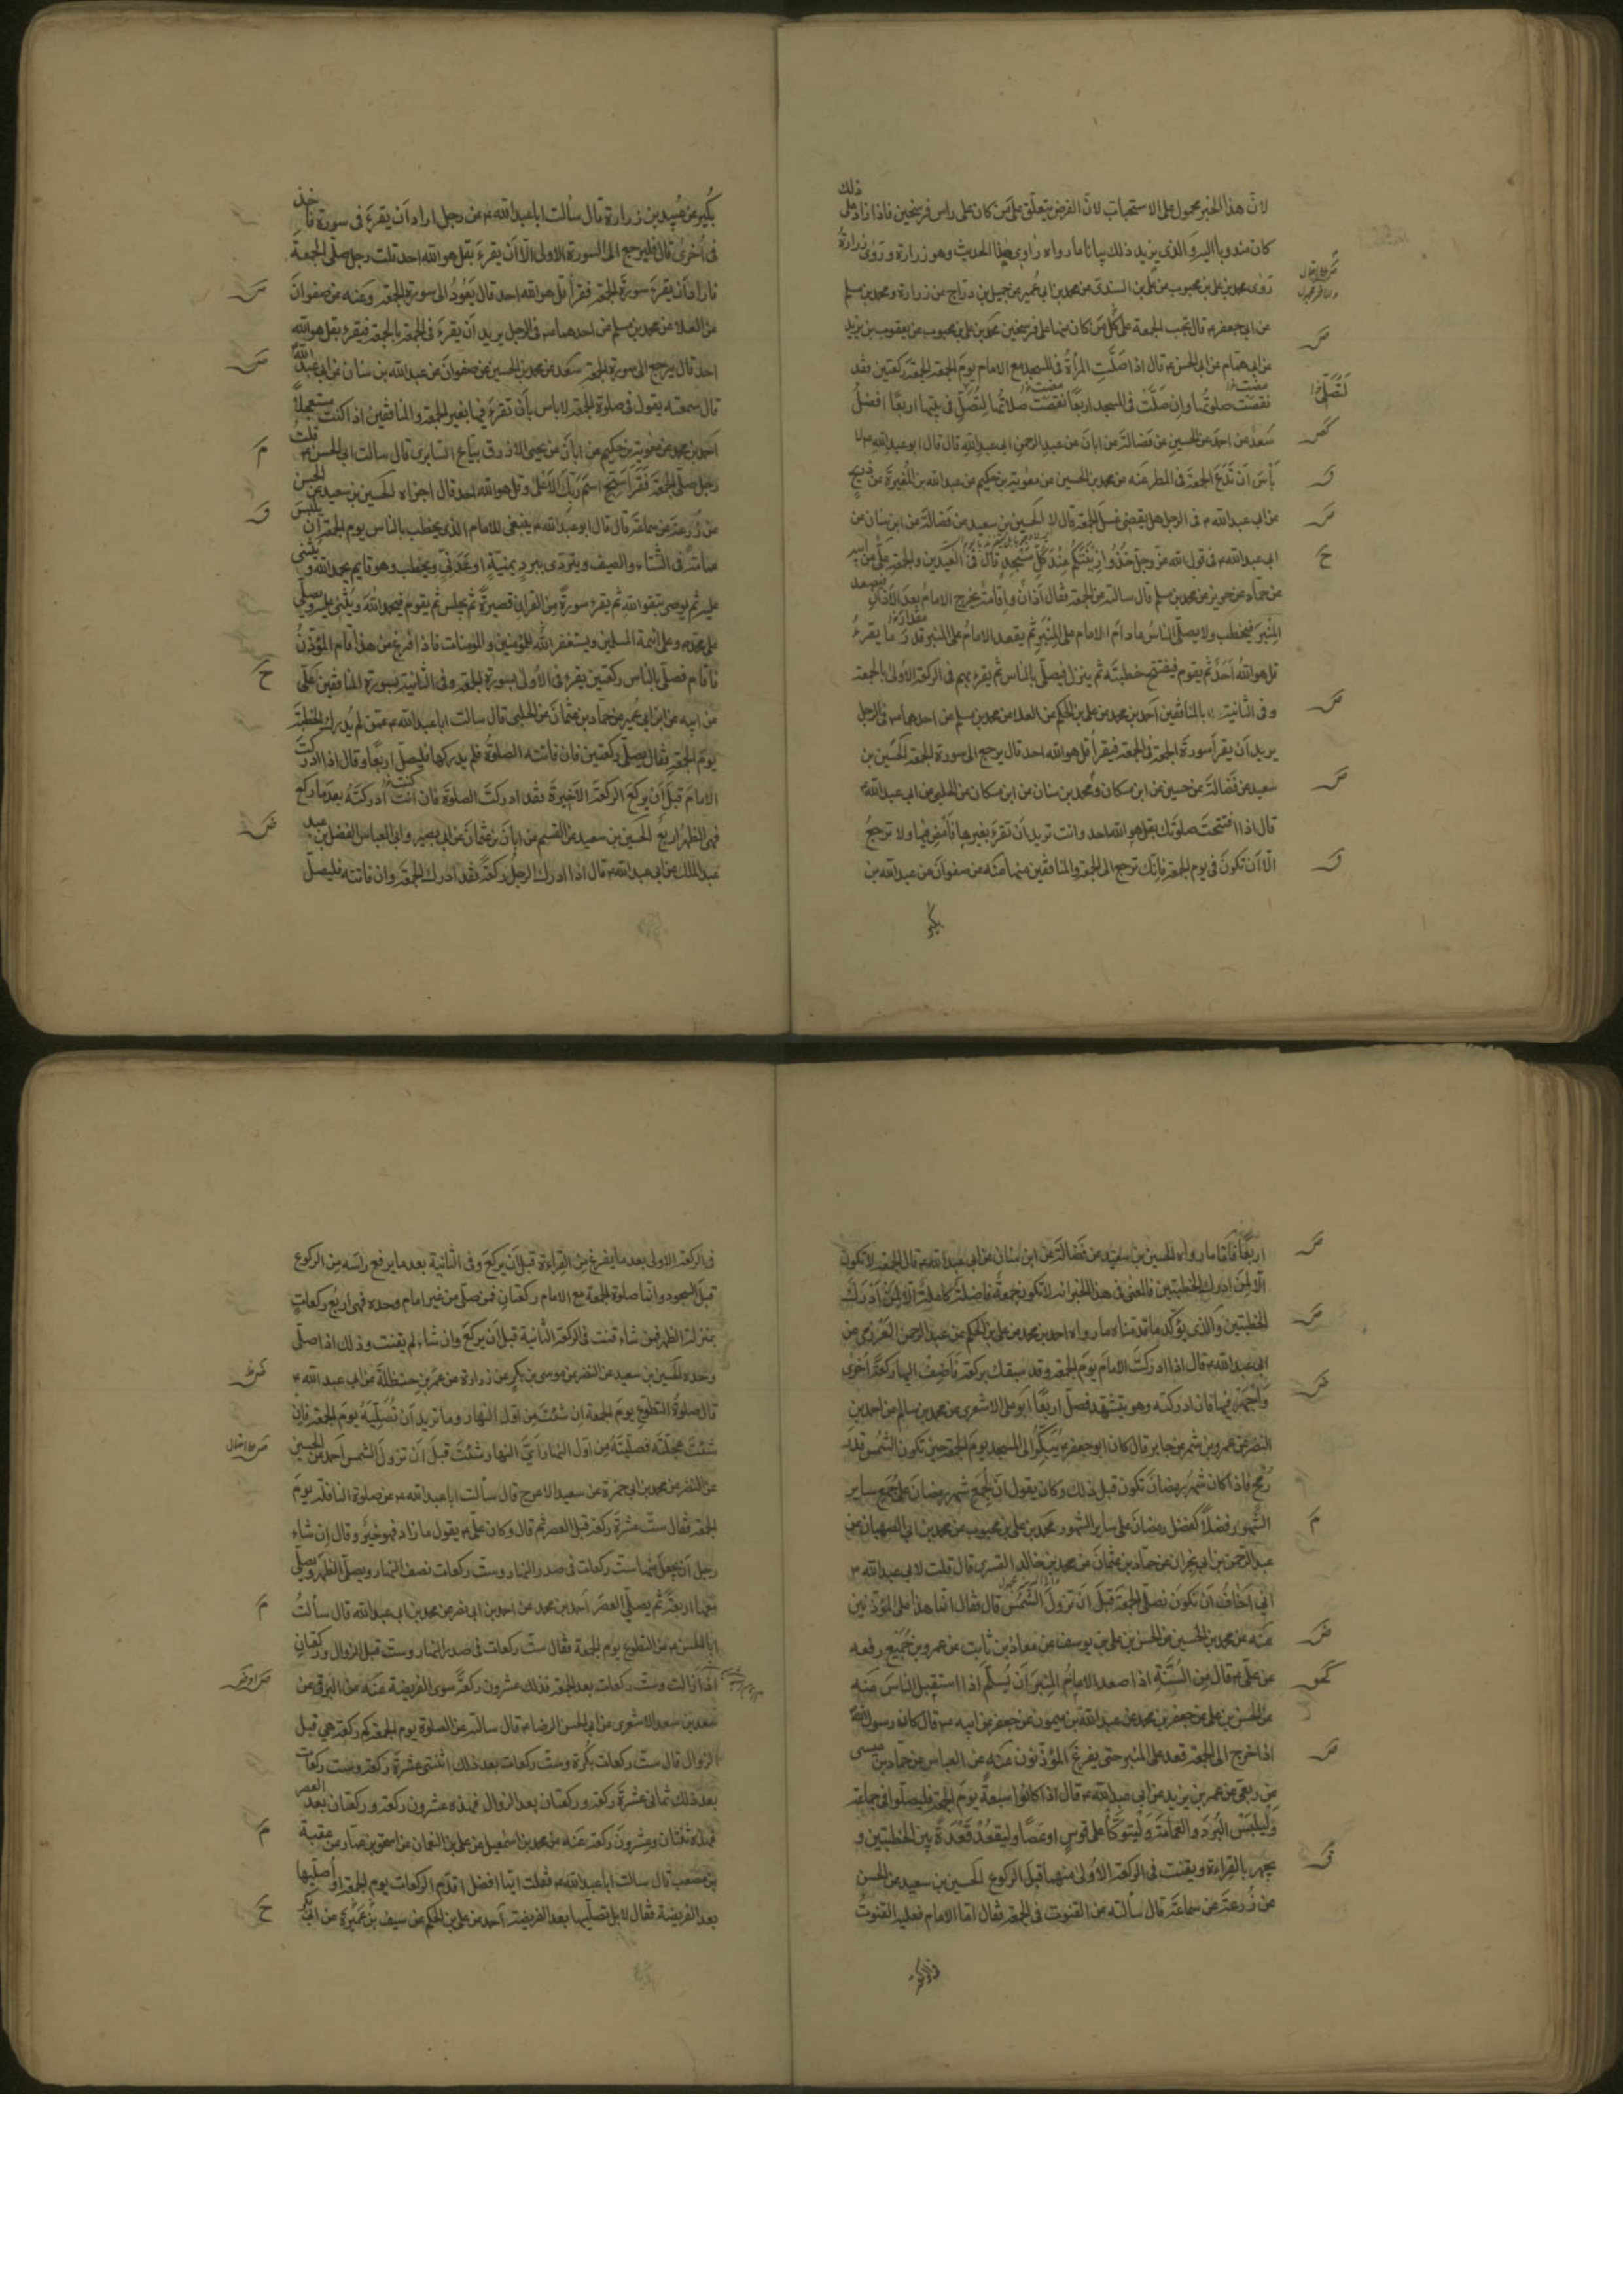 لان هذا الخبر محمول على الاستحباب لان الفرض يتعلق على من كان على راس فرسخين فاذا زاد على ذلك
كان مندوبا اليه والذى يزيد ذلك بيانا ما رواه راوى هذا الحديث وهو زرارة وروى زرارة
روى محمد بن على بن محبوب عن على بن السندى عن محمد بن ابى عمير عن جميل بن دراج عن زرارة ومحمد بن مسلم
عن ابى جعفر قال تجب الجمعة على كل من كان منها على فرسخين محمد بن على بن محبوب عن يعقوب بن يزيد
عن ابى همام عن ابى الحسن قال اذا صلت المرأة فى المسجد مع الامام يوم الجمعة الجمعة ركعتين فقد
نقصت صلوتها وان صلت فى المسجد اربعا نقصت صلاتها لتصل فى بيتها اربعا افضل
سعد عن احمد عن الحسين عن فضالة عن ابان عن عبد الرحمن ابى عبد الله قال قال ابو عبد الله لا
بأس ان تدع الجمعة فى المطر عنه عن محمد بن الحسين عن معوية بن حكيم عن عبد الله بن المغيرة عن ذريح
عن ابى عبد الله فى الرجل هل يقضى غسل الجمعة قال لا الحسين بن سعيد عن فضالة عن ابن سنان عن
ابى عبد الله فى قول الله عز وجل خذوا زينتكم عند كل مسجد قال فى العيدين والجمعة على عن ابيه
عن حماد عن حريز عن محمد بن مسلم قال سالته عن الجمعة فقال اذان واقامة يخرج الامام بعد الاذان فيصعد
المنبر فيخطب ولا يصلى الناس ما دام الامام على المنبر ثم يقعد الامام على المنبر قدر ما يقرء
قل هو الله احد ثم يقوم فيفتتح خطبته ثم ينزل فيصلى بالناس ثم يقرء بهم فى الركعة الاولى بالجمعة
وفى الثانية بالمنافقين احمد بن محمد عن على بن الحكم عن العلا عن محمد بن مسلم عن احدهما فى الرجل
يريد ان يقرأ سورة الجمعة فى الجمعة فيقرأ قل هو الله احد قال يرجع الى سورة الجمعة الحسين بن
سعيد عن فضالة عن حسين عن ابن مسكان ومحمد بن سنان عن ابن مسكان عن الحلبى عن ابى عبد الله
قال اذا افتتحت صلوتك بقل هو الله احد وانت تريد ان تقرء بغيرها فامض فيها ولا ترجع
الا ان تكون فى يوم الجمعة فانك ترجع الى الجمعة والمنافقين منها عنه عن صفوان عن عبد الله بن
بكير
بكير عن عبيد بن زرارة قال سألت ابا عبد الله عن رجل اراد ان يقرء فى سورة فاخذ
فى اخرى قال فليرجع الى السورة الاولى الا ان يقرء بقل هو الله احد قلت رجل صلى الجمعة
فاراد ان يقرء سورة الجمعة فقرأ قل هو الله احد قال يعود الى سورة الجمعة وعنه عن صفوان
عن العلا عن محمد بن مسلم عن احدهما فى الرجل يريد ان يقرء فى الجمعة بالجمعة فيقرء بقل هو الله
احد قال يرجع الى سورة الجمعة سعد عن محمد بن الحسين عن صفوان عن عبد الله بن سنان عن ابى عبد الله
قال سمعته يقول فى صلوة الجمعة لا باس بان تقرء فيها بغير الجمعة والمنافقين اذا كنت مستعجلا
احمد بن محمد عن معوية بن حكيم عن ابان عن يحيى الازرق بياع السابرى قال سالت ابى الحسن قلت
رجل صلى الجمعة فقرأ سبح اسم ربك الاعلى وقل هو الله احد قال اجزاه الحسين بن سعيد عن الحسن
عن زرعة عن سماعة قال قال ابو عبد الله ينبغى للامام الذى يخطب بالناس يوم الجمعة ان يلبس
عمامة فى الشتاء والصيف ويتردى ببرد يمنية او عدنى ويخطب وهو قايم يحمد الله ويثنى
عليه ثم يوصى بتقوا الله ثم يقرء سورة من القران قصيرة ثم يجلس ثم يقوم فيحمد الله ويثنى عليه ويصلى
على محمد وعلى ائمة المسلمين ويستغفر الله للمؤمنين والمؤمنات فاذا فرغ من هذا اقام المؤذن
فاقام فصلى بالناس ركعتين يقرء فى الاولى بسورة الجمعة وفى الثانية بسورة المنافقين على
عن ابيه عن ابن ابى عمير عن حماد بن عثمان عن الحلبى قال سالت ابا عبد الله عمن لم يدرك الخطبة
يوم الجمعة فقال يصلى ركعتين فان فاتته الصلوة فلم يدركها فليصل اربعا وقال اذا ادركت
الامام قبل ان يركع الركعة الاخيرة فقد ادركت الصلوة فان انت ادركته بعد ما ركع
فهى الظهر اربع الحسين بن سعيد عن القسم عن ابان بن عثمان عن ابى بصير وابى العباس الفضل بن عبد
عبد الملك عن ابى عبد الله قال اذا ادرك الرجل ركعة فقد ادرك الجمعة وان فاتته فليصل
اربعا فاما ما رواه الحسين بن سعيد عن فضالة عن ابن سنان عن ابى عبد الله قال الجمعة لا تكون
الا لمن ادرك الخطبتين فالمعنى فى هذا الخبر انه لا تكون جمعة فاضلة كاملة الا لمن ادرك
الخطبتين والذى يؤكد ما قدمناه ما رواه احمد بن محمد عن على بن الحكم عن عبد الرحمن العرزمى عن
ابى عبد الله قال اذا ادركت الامام يوم الجمعة وقد سبقك بركعة فاضف اليها ركعة اخرى
واجهر فيها فان ادركته وهو يتشهد فصل اربعا ابو على الاشعرى عن محمد بن سالم عن احمد بن
النضر عن عمرو بن شمر عن جابر قال كان ابو جعفر يبكر الى المسجد يوم الجمعة حين تكون الشمس قدر
رمح فاذا كان شهر رمضان تكون قبل ذلك وكان يقول ان لجمع شهر رمضان على جمع ساير
الشهور فضلا كفضل رمضان على ساير الشهور محمد بن على بن محبوب عن محمد بن ابى الصهبان عن
عبد الرحمن بن ابى نجران عن حماد بن عثمان عن محمد بن خالد القسرى قال قلت لابى عبد الله
انى اخاف ان تكون نصلى الجمعة قبل ان تزول الشمس قال فقال انما هذا على المؤذنين
عنه عن محمد بن الحسين عن الحسن بن على بن يوسف عن معاذ بن ثابت عن عمرو بن جميع رفعه
عن على قال من السنة اذا صعد الامام المنبر ان يسلم اذا استقبل الناس عنه
عن الحسن بن على عن جعفر بن محمد عن عبد الله بن ميمون عن جعفر عن ابيه قال كان رسول الله
اذا خرج الى الجمعة قعد على المنبر حتى يفرغ المؤذنون عنه عن العباس عن حماد بن عيسى
عن ربعى عن عمر بن يزيد عن ابى عبد الله قال اذا كانوا سبعة يوم الجمعة فليصلوا فى جماعة
وليلبس البرد والعمامة وليتوكأ على قوس او عصا وليقعد قعدة بين الخطبتين و
يجهر بالقراءة ويقنت فى الركعة الاولى منهما قبل الركوع الحسين بن سعيد عن الحسن
عن زرعة عن سماعة قال سألته عن القنوت فى الجمعة فقال اما الامام فعليه القنوت
فى الركعة
فى الركعة الاولى بعد ما يفرغ من القراءة قبل ان يركع وفى الثانية بعد ما يرفع راسه من الركوع
قبل السجود وانما صلوة الجمعة مع الامام ركعتان فمن صلى من غير امام وحده فهى اربع ركعات
بمنزلة الظهر فمن شاء قنت فى الركعة الثانية قبل ان يركع وان شاء لم يقنت وذلك اذا صلى
وحده الحسين بن سعيد عن النضر عن موسى بن بكر عن زرارة عن عمر بن حنظلة عن ابى عبد الله
قال صلوة التطوع يوم الجمعة ان شئت من اول النهار وما تريد ان تصليه يوم الجمعة فان
شئت عجلته فصليته من اول النهار اى النهار شئت قبل ان تزول الشمس احمد بن الحسين
عن النضر عن محمد بن ابى حمزة عن سعيد الاعرج قال سألت ابا عبد الله عن صلوة النافلة يوم
الجمعة فقال ست عشرة ركعة قبل العصر ثم قال وكان على يقول ما زاد فهو خير وقال ان شاء
رجل ان يجعل منها ست ركعات فى صدر النهار وست ركعات نصف النهار ويصلى الظهر ويصلى
معها اربعة ثم يصلى العصر احمد بن محمد عن احمد بن ابى نصر عن محمد بن ابى عبد الله قال سألت
ابا الحسن عن التطوع يوم الجمعة فقال ست ركعات فى صدر النهار وست قبل الزوال وركعتان
اذا زالت وست ركعات بعد الجمعة فذلك عشرون ركعة سوى الفريضة عنه عن البرقى عن
سعد بن سعد الاشعرى عن ابى الحسن الرضا قال سالته عن الصلوة يوم الجمعة كم ركعة هى قبل
الزوال قال ست ركعات بكرة وست ركعات بعد ذلك اثنتى عشرة ركعة وست ركعات
بعد ذلك ثمانى عشرة ركعة وركعتان بعد الزوال فهذه عشرون ركعة وركعتان بعد العصر
فهذه ثنتان وعشرون ركعة عنه عن محمد بن اسمعيل عن على بن النعمان عن اسحق بن عمار عن عقبة
بن مصعب قال سالت ابا عبد الله فقلت ايما افضل اقدم الركعات يوم الجمعة او اصليها
بعد الفريضة فقال لا بل تصليها بعد الفريضة احمد عن على بن الحكم عن سيف بن عميرة عن ابى بكر